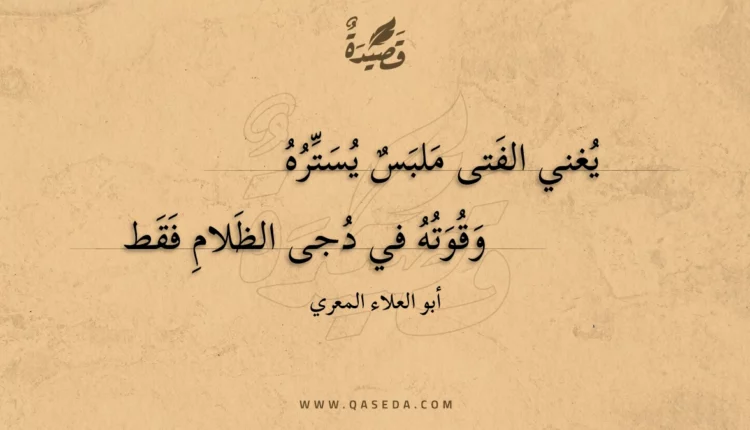 قَصِيدَةٌ
يُغني الفَتى مَلبَسٌ يُسَتِّرُهُ
وَقُوَتُهُ في دُجى الظَلامِ فَقَط
أبو العلاء المعري
WWW.QASEDA.COM